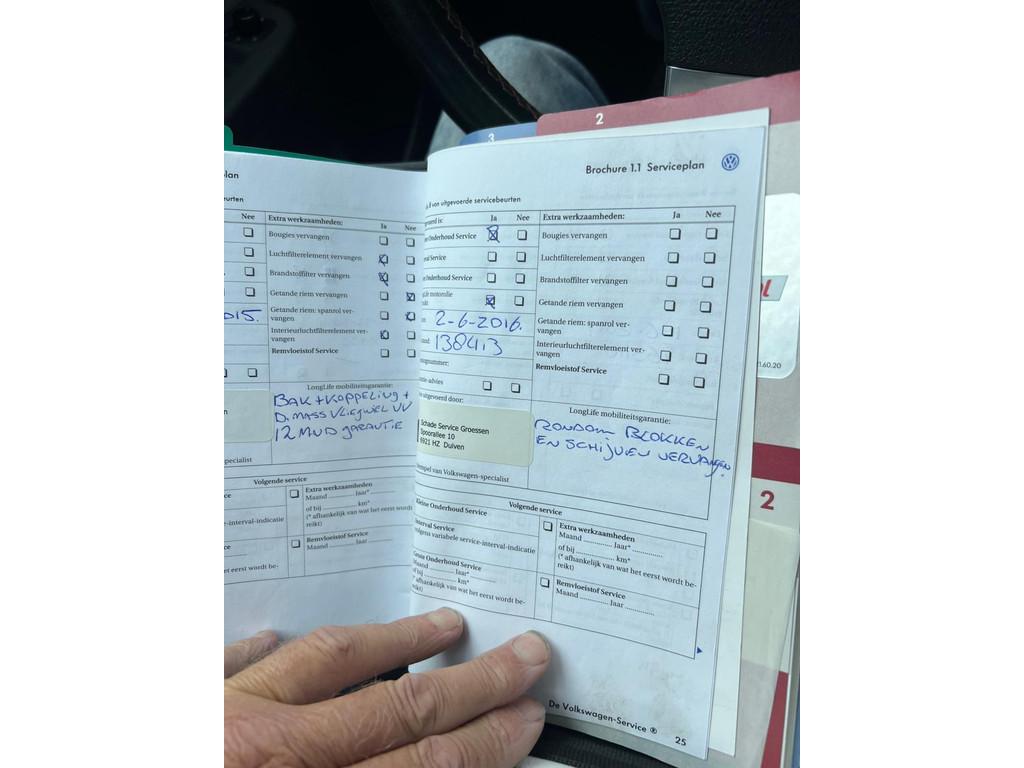 2
3
lan
beurten
Nee
Extra werkzaamheden:
Ja
Nee
Bougies vervangen
Luchtfilterelement vervangen
Brandstoffilter vervangen
Getande riem vervangen
Getande riem: spanrol ver-
vangen
Interieurluchtfilterelement ver-
vangen
Remvloeistof Service
015.
LongLife mobiliteitsgarantie:
BAK + KOPPELING +
D. MASS VLIEGWIEL VV
12 MND GARANTIE
specialist
Volgende service
ce
e-interval-indicatie
Extra werkzaamheden
Maand .......... Jaar*..........
of bij .......... km*
(* afhankelijk van wat het eerst wordt be-
reikt)
Remvloeistof Service
Maand .......... Jaar ..........
et eerst wordt be-
Brochure 1.1 Serviceplan
van uitgevoerde servicebeurten
Ja
Nee
Extra werkzaamheden:
Ja
Nee
Onderhoud Service
Service
Onderhoud Service
motorolie
Bougies vervangen
Luchtfilterelement vervangen
Brandstoffilter vervangen
Getande riem vervangen
Getande riem: spanrol ver-
vangen
Interieurluchtfilterelement ver-
vangen
Remvloeistof Service
2-6-2016.
138413
advies
uitgevoerd door:
Schade Service Groessen
Spoorallee 10
6921 HZ Duiven
LongLife mobiliteitsgarantie:
RONDOM BLOKKEN
EN SCHIJVEN VERVANGEN.
Stempel van Volkswagen-specialist
Volgende service
Kleine Onderhoud Service
Interval Service
volgens variabele service-interval-indicatie
Grote Onderhoud Service
Maand .......... Jaar*..........
of bij .......... km*
(* afhankelijk van wat het eerst wordt be-
reikt)
Extra werkzaamheden
Maand .......... Jaar*..........
of bij .......... km*
(* afhankelijk van wat het eerst wordt be-
reikt)
Remvloeistof Service
Maand .......... Jaar ..........
De Volkswagen-Service ®
25
1.60.20
2